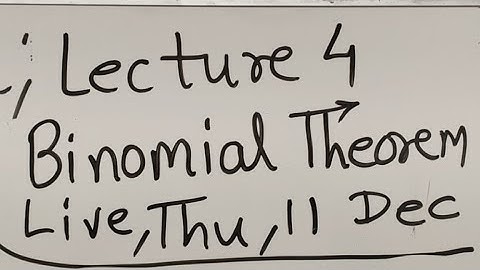 ; Lecture 4
Binomial Theorem
Live, Thu, 11 Dec